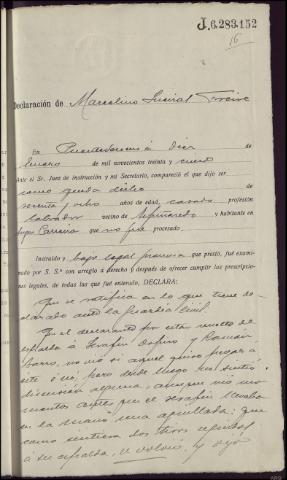 J.6.283.152
16
Declaración de Marcelino
En a Diez de
Enero de mil novecientos treinta y cinco
Ante el Sr. Juez de instrucción y mi Secretario, compareció el que dijo ser
como queda dicho de
treinta y ocho años de edad, casado, profesión
labrador vecino de y habitante en
que no fué procesado.
Instruído y bajo legal promesa que prestó, fué examinado
por S. Sª con arreglo a derecho y después de ofrecer cumplir las prescripciones
legales, de todas las que fué enterado, DECLARA:
Que se ratifica en lo que tiene de-
clarado ante la guardia civil.
Que el declarante por estar vuelto de
espalda a Serafin y Román
no vió si aquel quiso pegar a
este ó no; pero desde luego no sintió
discusión alguna, aunque vió mo-
mentos antes que el Serafin llevaba
en la mano una aguillada: que
como sintiera dos tiros
a su espalda, se volvió, y vió